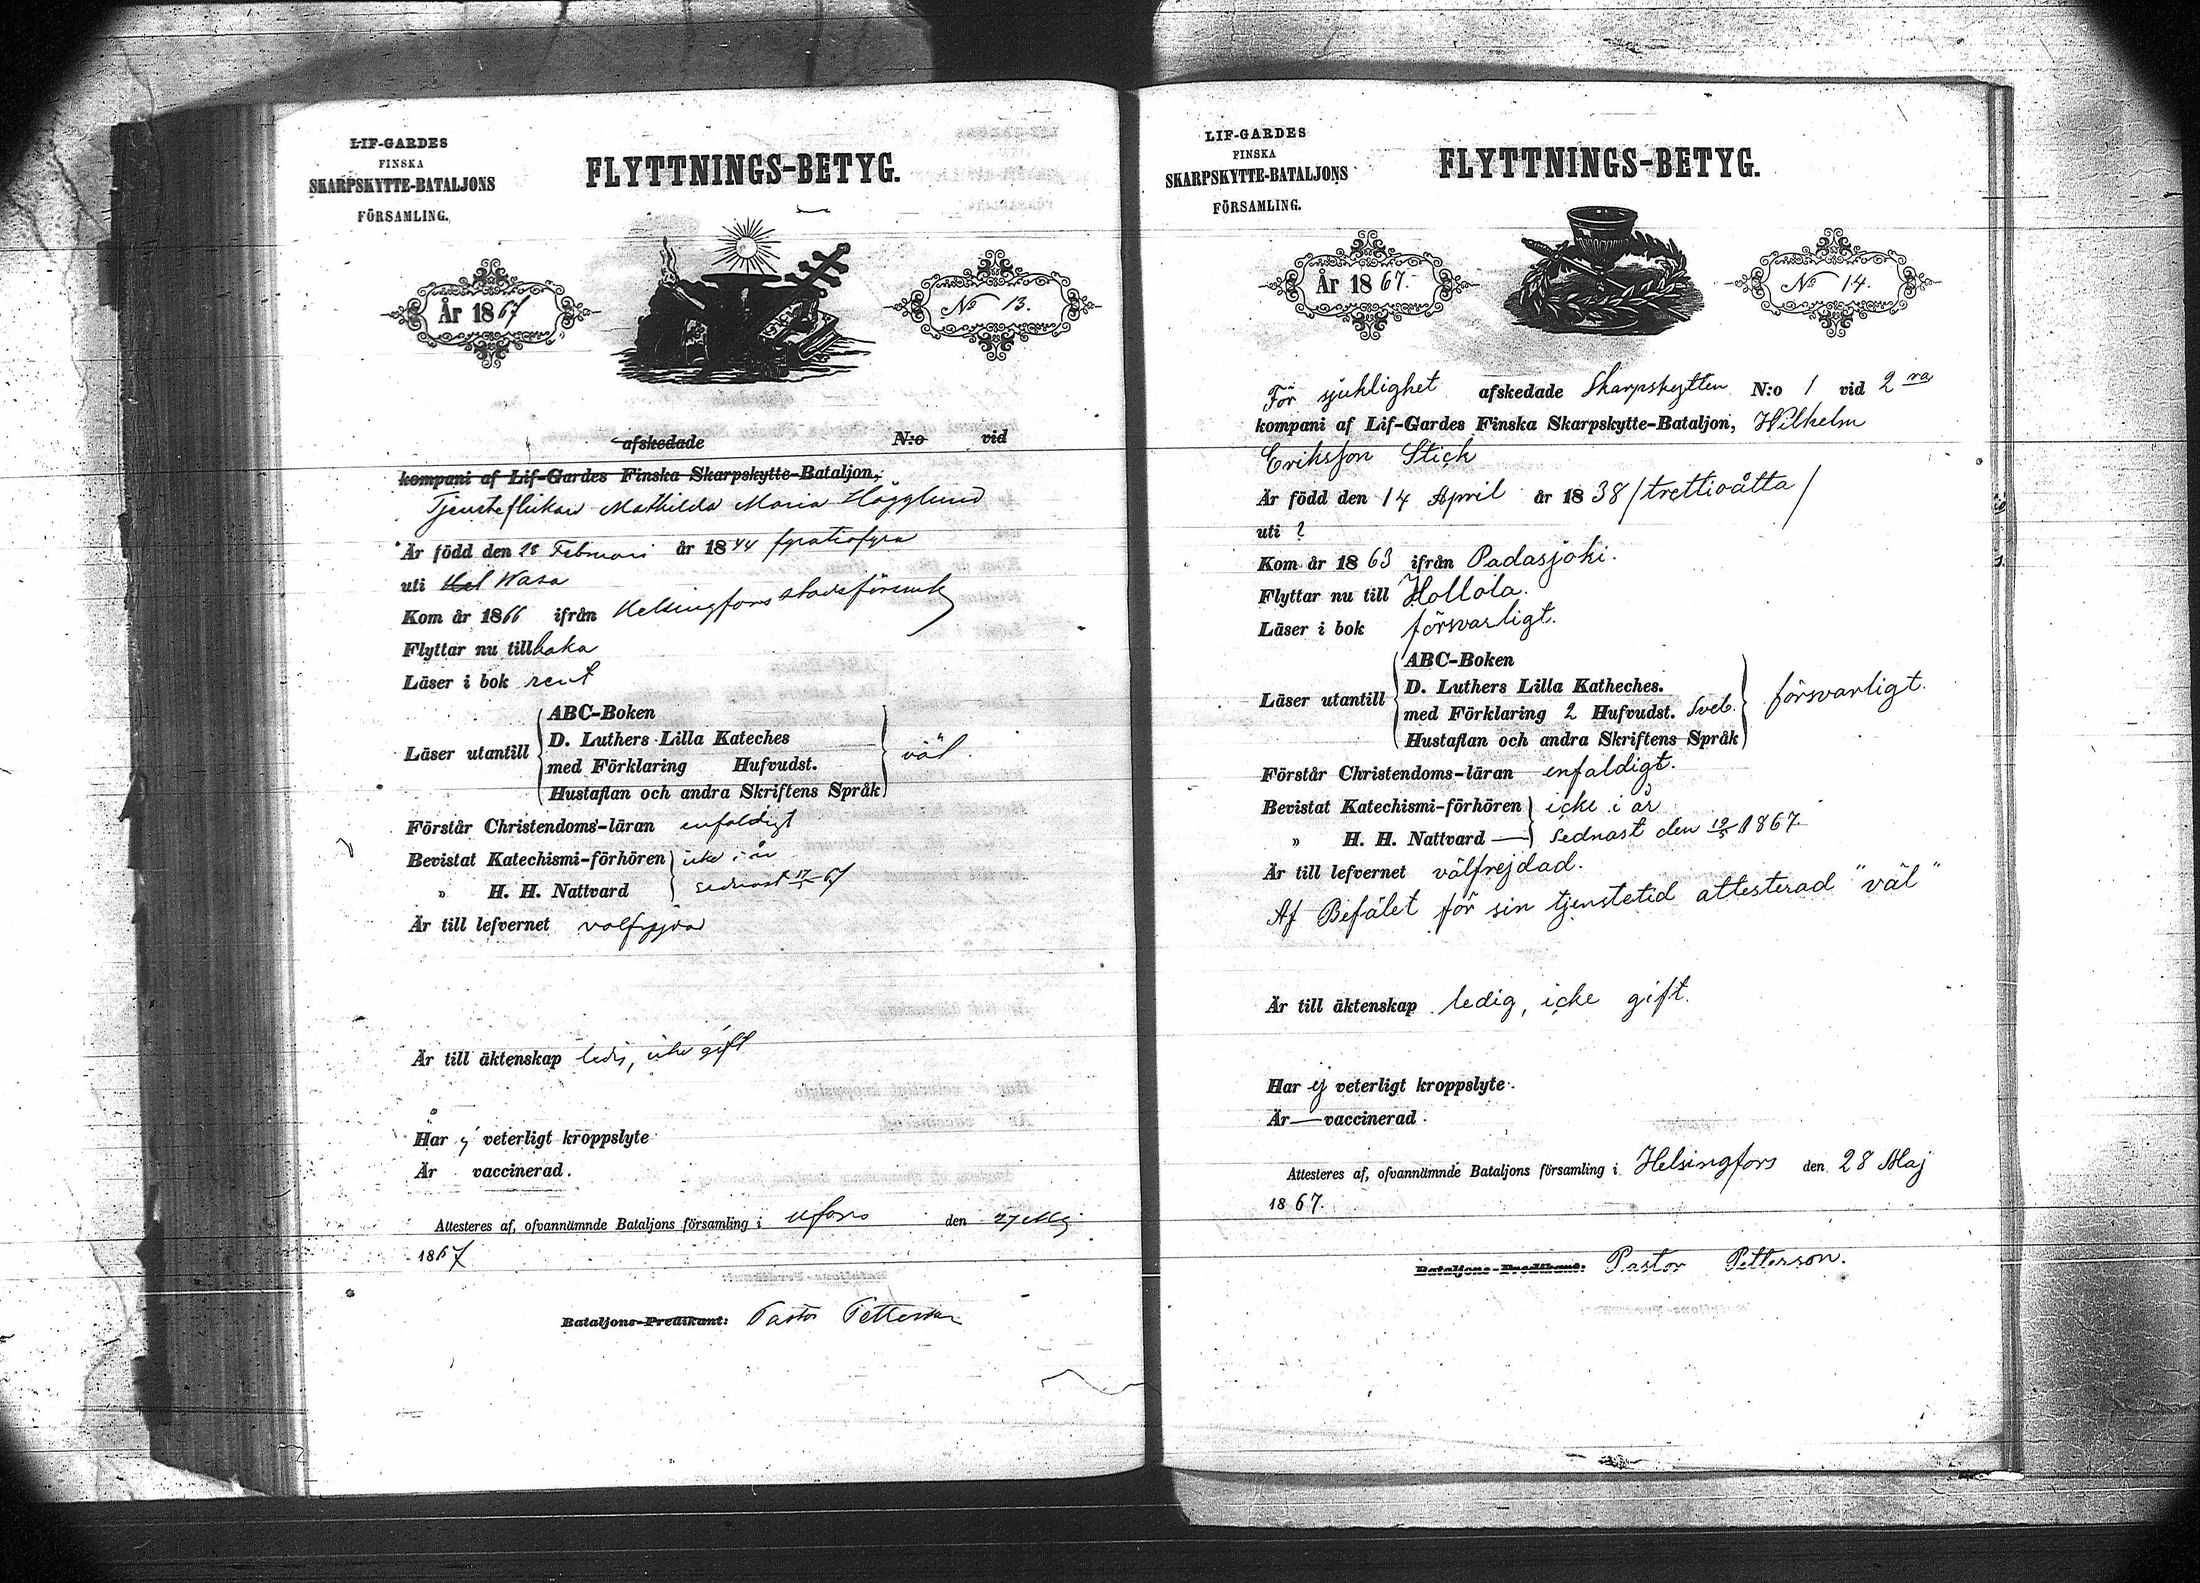 LIF-GARDES
FINSKA
SKARPSKYTTE-BATALJONS
FÖRSAMLING.
FLYTTNINGS-BETYG.
År 1867
No 13.
afskedade N:o vid
kompani af Lif-Gardes Finska Skarpskytte-Bataljon,
Tjensteflickan Mathilda Maria Högglund
Är född den 28 Februari år 1844 fyratiofyra
uti Hel Wasa
Kom år 1866 ifrån Helsingfors stadsförsamk
Flyttar nu tillbaka
Läser i bok rent
Läser utantill
ABC-Boken
D. Luthers Lilla Kateches
med Förklaring Hufvudst.
Hustaflan och andra Skriftens Språk
väl.
Förstår Christendoms-läran enfaldigt
Bevistat Katechismi-förhören icke i år
" H. H. Nattvard sednast 67
Är till lefvernet välfrejdad
Är till äktenskap ledig, icke gift
Har ej veterligt kroppslyte
Är vaccinerad.
Attesteres af, ofvannämnde Bataljons församling i Hfors den 27 Maj
1867
Bataljons-Predikant: Pastor Petterson
LIF-GARDES
FINSKA
SKARPSKYTTE-BATALJONS
FÖRSAMLING.
FLYTTNINGS-BETYG.
År 1867.
No 14.
För sjuklighet afskedade Skarpskytten N:o 1 vid 2 ra
kompani af Lif-Gardes Finska Skarpskytte-Bataljon, Wilhelm
Eriksson Stick
Är född den 14 April år 1838 /trettioåtta/
uti ?
Kom år 1863 ifrån Padasjoki.
Flyttar nu till Hollola.
Läser i bok försvarligt.
Läser utantill
ABC-Boken
D. Luthers Lilla Katheches.
med Förklaring 2 Hufvudst. Sveb.
Hustaflan och andra Skriftens Språk
försvarligt.
Förstår Christendoms-läran enfaldigt.
Bevistat Katechismi-förhören icke i år
" H. H. Nattvard — sednast den 19/5 1867.
Är till lefvernet välfrejdad.
Af Befälet för sin tjenstetid attesterad "väl"
Är till äktenskap ledig, icke gift.
Har ej veterligt kroppslyte.
Är — vaccinerad.
Attesteres af, ofvannämnde Bataljons församling i Helsingfors den 28 Maj
1867.
Bataljons-Predikant: Pastor Petterson.